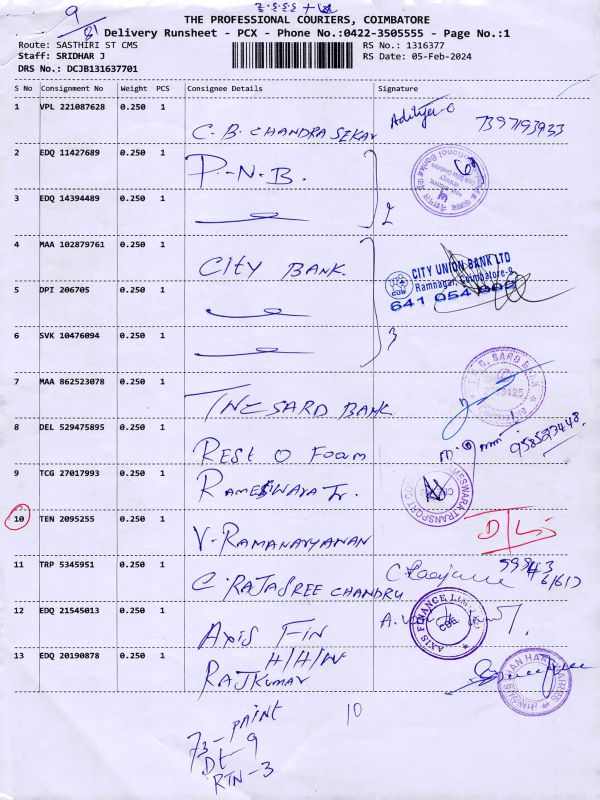 9
THE PROFESSIONAL COURIERS, COIMBATORE
Delivery Runsheet - PCX - Phone No.:0422-3505555 - Page No.:1
Route: SASTHIRI ST CMS RS No.: 1316377
Staff: SRIDHAR J RS Date: 05-Feb-2024
DRS No.: DCJB131637701
S No Consignment No Weight PCS Consignee Details Signature
1 VPL 221087628 0.250 1 C. B. CHANDRA SEKAR 7397193933
2 EDQ 11427689 0.250 1 P.N.B.
3 EDQ 14394489 0.250 1 2
4 MAA 102879761 0.250 1 CITY BANK
CITY UNION BANK LTD
Ramnagar, Coimbatore-9
641 054 002
5 DPI 206705 0.250 1
6 SVK 10476094 0.250 1 3
7 MAA 862523078 0.250 1 THE SARD BANK
8 DEL 529475895 0.250 1 REST O FOAM
9 TCG 27017993 0.250 1 RAMESWARA Tr. RAMESWARA TRANSPORT
10 TEN 2095255 0.250 1 V. RAMANARYANAN D/L
11 TRP 5345951 0.250 1 C. RAJASREE CHANDRU
12 EDQ 21545013 0.250 1 AXIS FIN AXIS FINANCE LIMITED CBE
13 EDQ 20190878 0.250 1 H/H/W RAJKUMAR
73 - PAINT 10
Dt - 9
RTN - 3